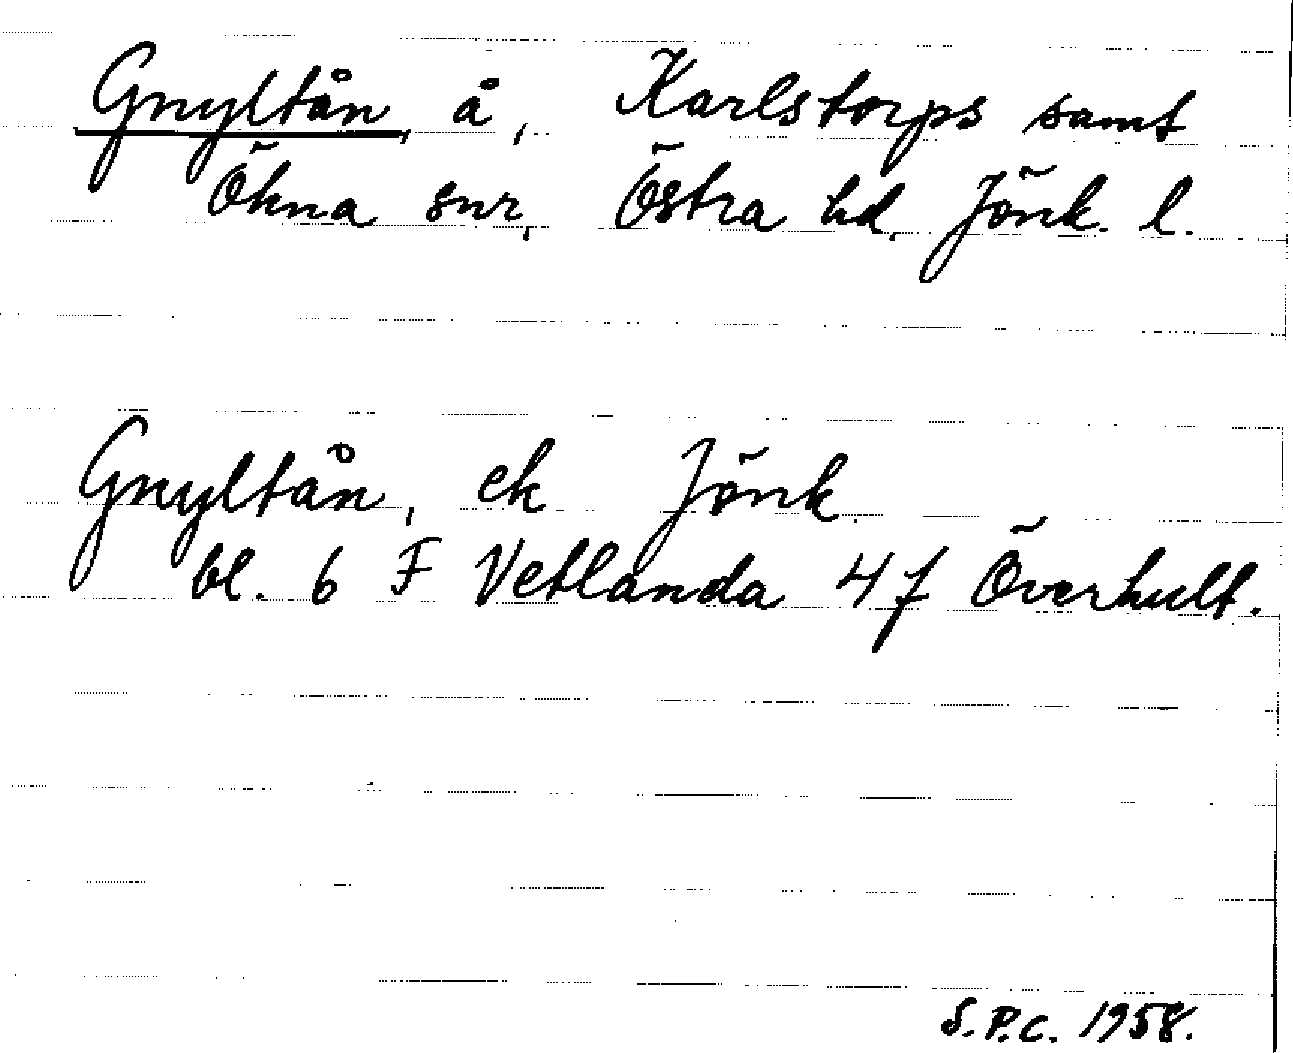 Gnyltån, å, Karlstorps samt
Ökna snr, Östra hd, Jönk. l.
Gnyltån, ek Jönk.
bl. 6 F Vetlanda 4 f Överhult.
S.P.C. 1958.